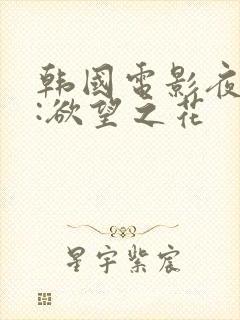 韩國電影夜
:欲望之花
星宇紫宸